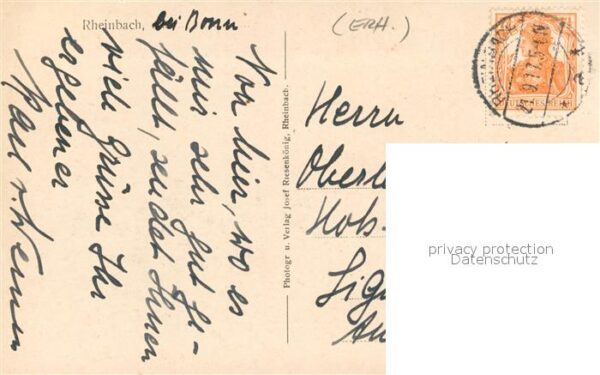 Rheinbach, bei Bonn
(ERH.)
Von hier, wo es
mir sehr gut ge-
fällt, sendet Ihnen
viele Grüsse Ihr
ergebener
Photogr u. Verlag Josef Riesenkönig, Rheinbach.
RHEINBACH
DEUTSCHES REICH
Herrn
Oberl
Hols
privacy protection
Datenschutz